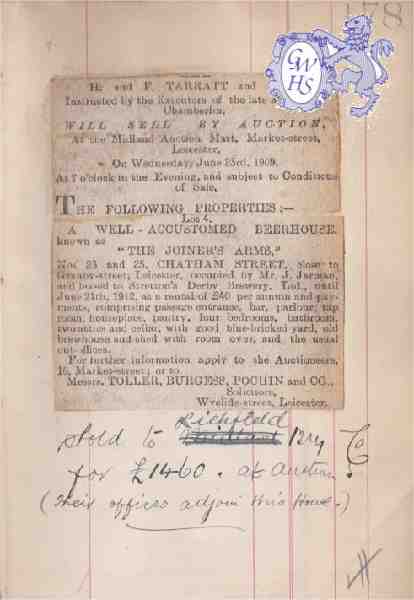 178
GWHS
H. and F. TARRATT and
Instructed by the Executors of the late
Chamberlin,
WILL SELL BY AUCTION,
At the Midland Auction Mart, Market-street,
Leicester,
On Wednesday, June 23rd, 1909,
At 7 o'clock in the Evening, and subject to Conditions
of Sale,
THE FOLLOWING PROPERTIES:—
Lot 4.
A WELL-ACCUSTOMED BEERHOUSE,
known as
"THE JOINER'S ARMS,"
Nos. 23 and 25, CHATHAM STREET, close to
Granby-street, Leicester, occupied by Mr. J. Jarman,
and leased to Stretton's Derby Brewery, Ltd., until
June 24th, 1912, at a rental of £40 per annum and pay-
ments, comprising passage entrance, bar, parlour, tap
room, houseplace, pantry, four bedrooms, bathroom,
two attics and cellar, with good blue-bricked yard, old
brewhouse and shed with room over, and the usual
out-offices.
For further information apply to the Auctioneers,
16, Market-street; or to
Messrs. TOLLER, BURGESS, POCHIN and CO.,
Solicitors,
Wycliffe-street, Leicester.
Lichfield
sold to Bry Co
for £1460. at Auction
(Their offices adjoin this house.)